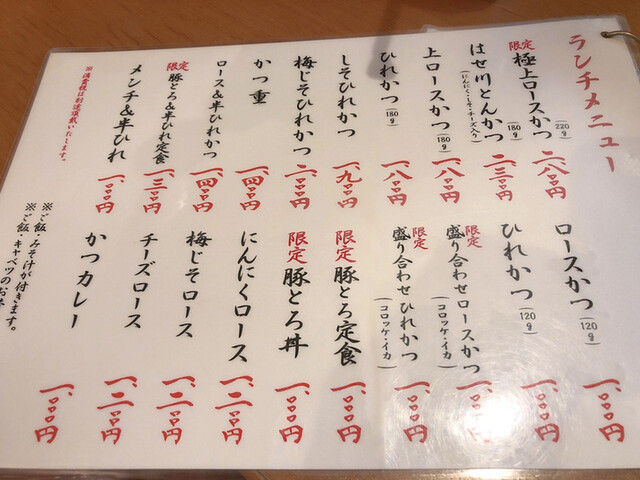 ランチメニュー
限定 極上ロースかつ(220g) 二、八〇〇円
はせ川とんかつ(180g)
(にんにく・しそ・チーズ入り) 二、三〇〇円
上ロースかつ(180g) 一、八〇〇円
ひれかつ(180g) 一、八〇〇円
しそひれかつ 一、九〇〇円
梅じそひれかつ 二、〇〇〇円
かつ重 一、四〇〇円
ロース&半ひれかつ 一、四〇〇円
限定 豚とろ&半ひれ定食 一、三〇〇円
メンチ&半ひれ 一、〇〇〇円
※消費税は別途頂戴いたします。
ロースかつ(120g) 一、〇〇〇円
ひれかつ(120g) 一、〇〇〇円
限定 盛り合わせロースかつ
(コロッケ・イカ) 一、〇〇〇円
限定 盛り合わせひれかつ
(コロッケ・イカ) 一、〇〇〇円
限定 豚とろ定食 一、〇〇〇円
限定 豚とろ丼 一、〇〇〇円
にんにくロース 一、二〇〇円
梅じそロース 一、二〇〇円
チーズロース 一、二〇〇円
かつカレー 一、〇〇〇円
※ご飯・みそ汁が付きます。
※ご飯・キャベツのお